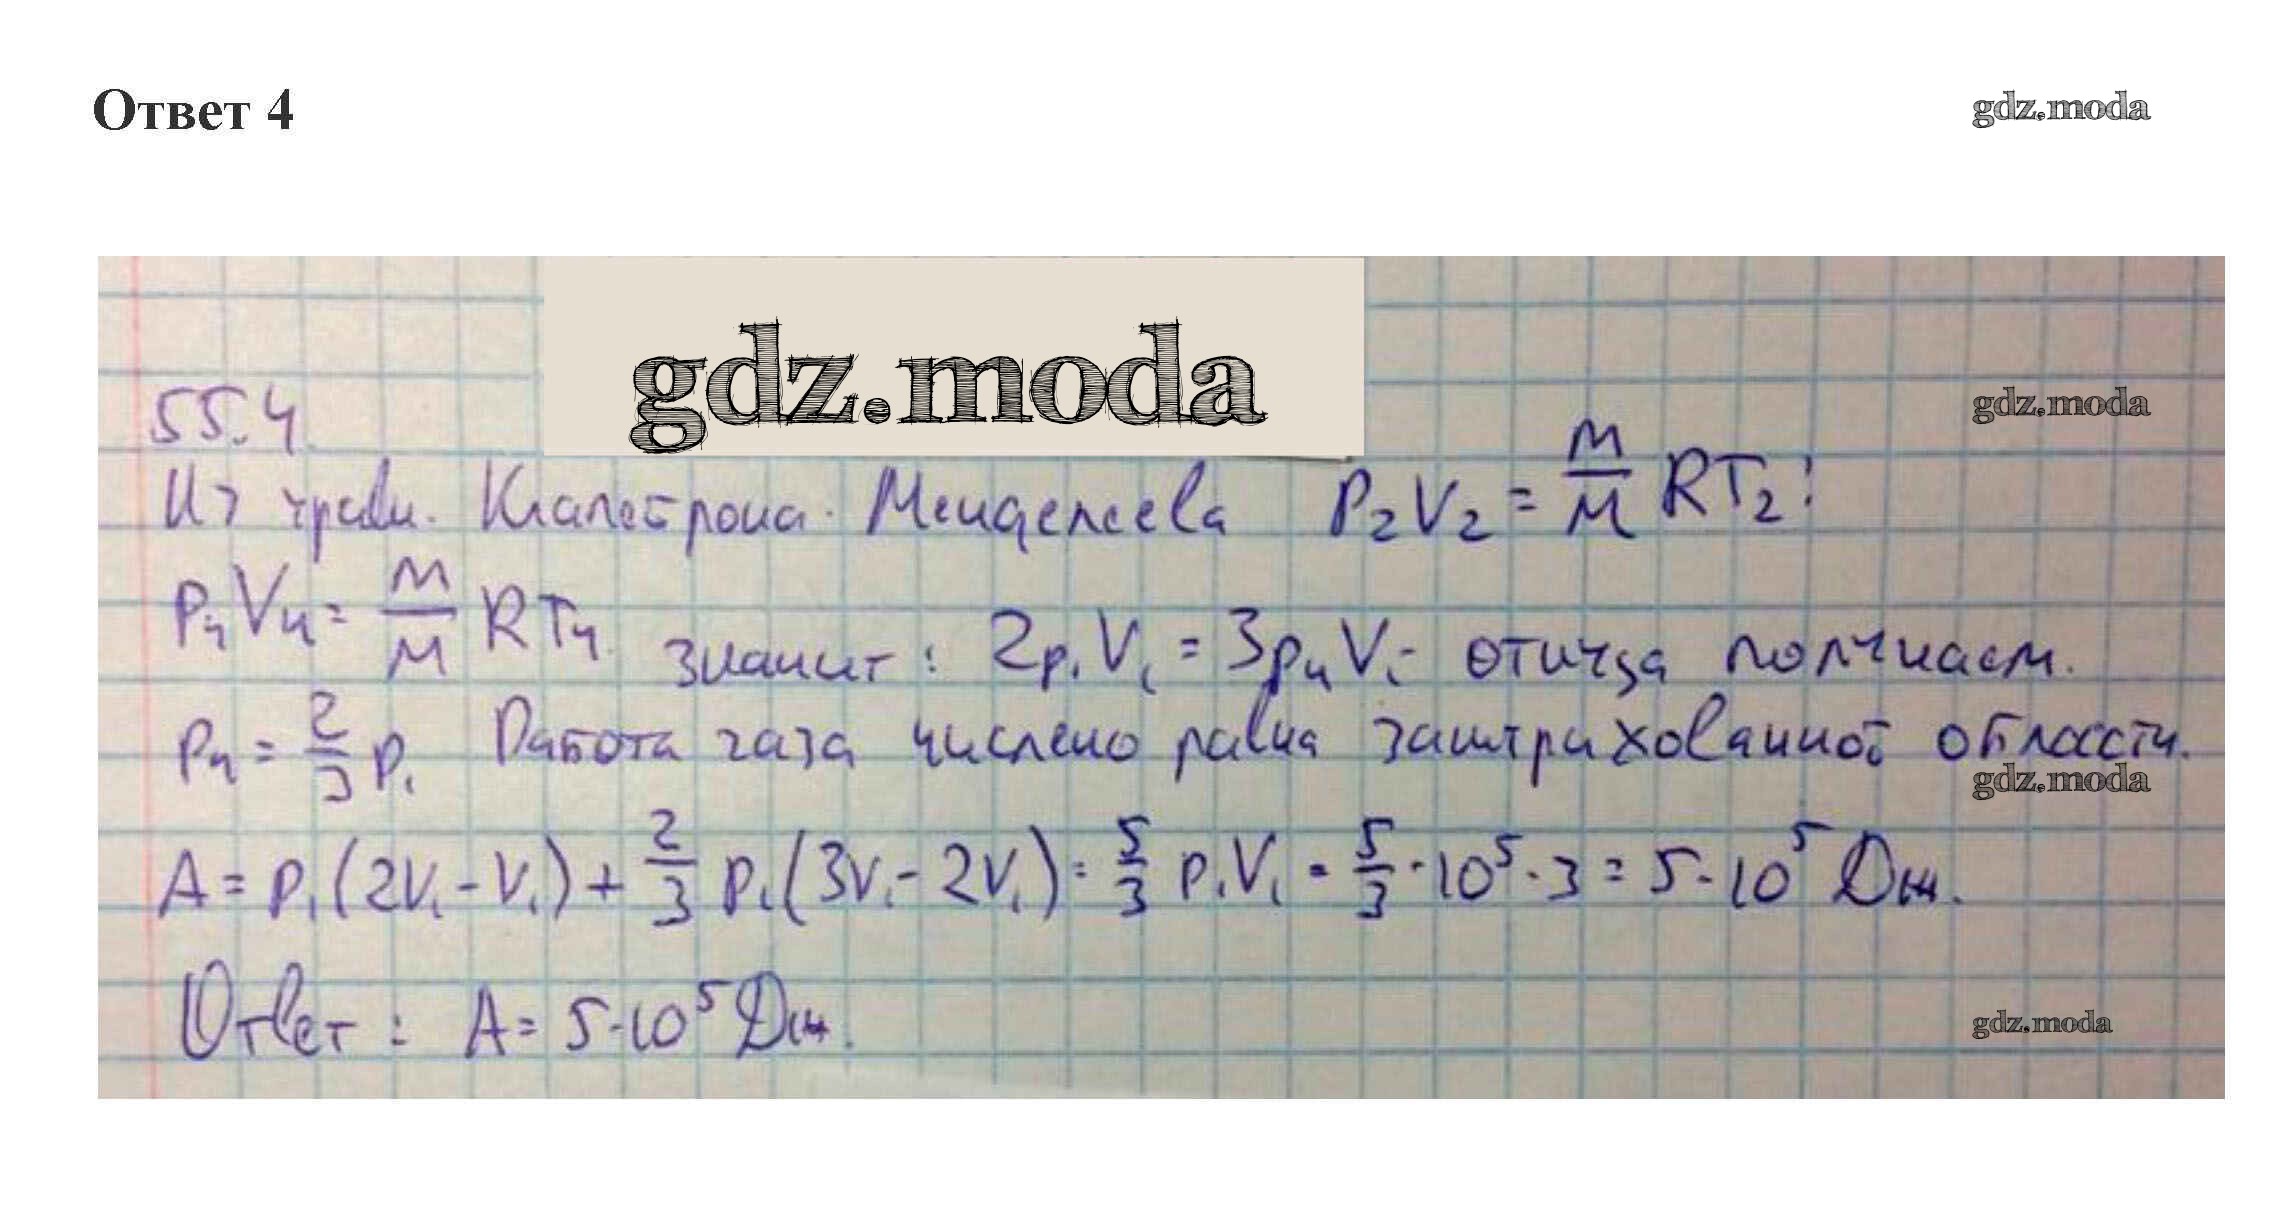 Ответ 4
gdz.moda
gdz.moda
55.4.
gdz.moda
Из уравн. Клапейрона. Менделеева P₂V₂ = m/M RT₂;
P₄V₄ = m/M RT₄ значит: 2p₁V₁ = 3p₄V₁ - отсюда получаем.
P₄ = 2/3 P₁ Работа газа числено равна заштрихованной области.
gdz.moda
A = p₁(2V₁ - V₁) + 2/3 p₁(3V₁ - 2V₁) = 5/3 p₁V₁ = 5/3 · 10⁵ · 3 = 5 · 10⁵ Дж.
Ответ: A = 5·10⁵ Дж.
gdz.moda